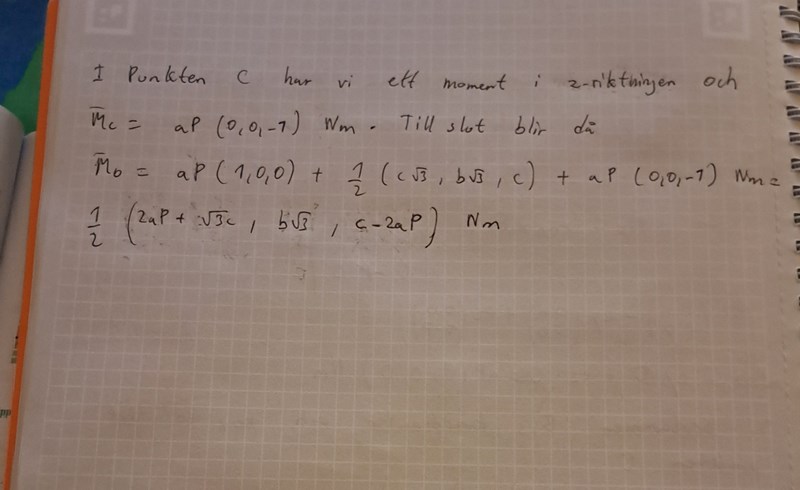 I Punkten C har vi ett moment i z-riktningen och
M̄c = aP (0,0,-1) Nm. Till slut blir då
M̄o = aP (1,0,0) + 1/2 (c√3, b√3, c) + aP (0,0,-1) Nm =
1/2 (2aP + √3c, b√3, c-2aP) Nm